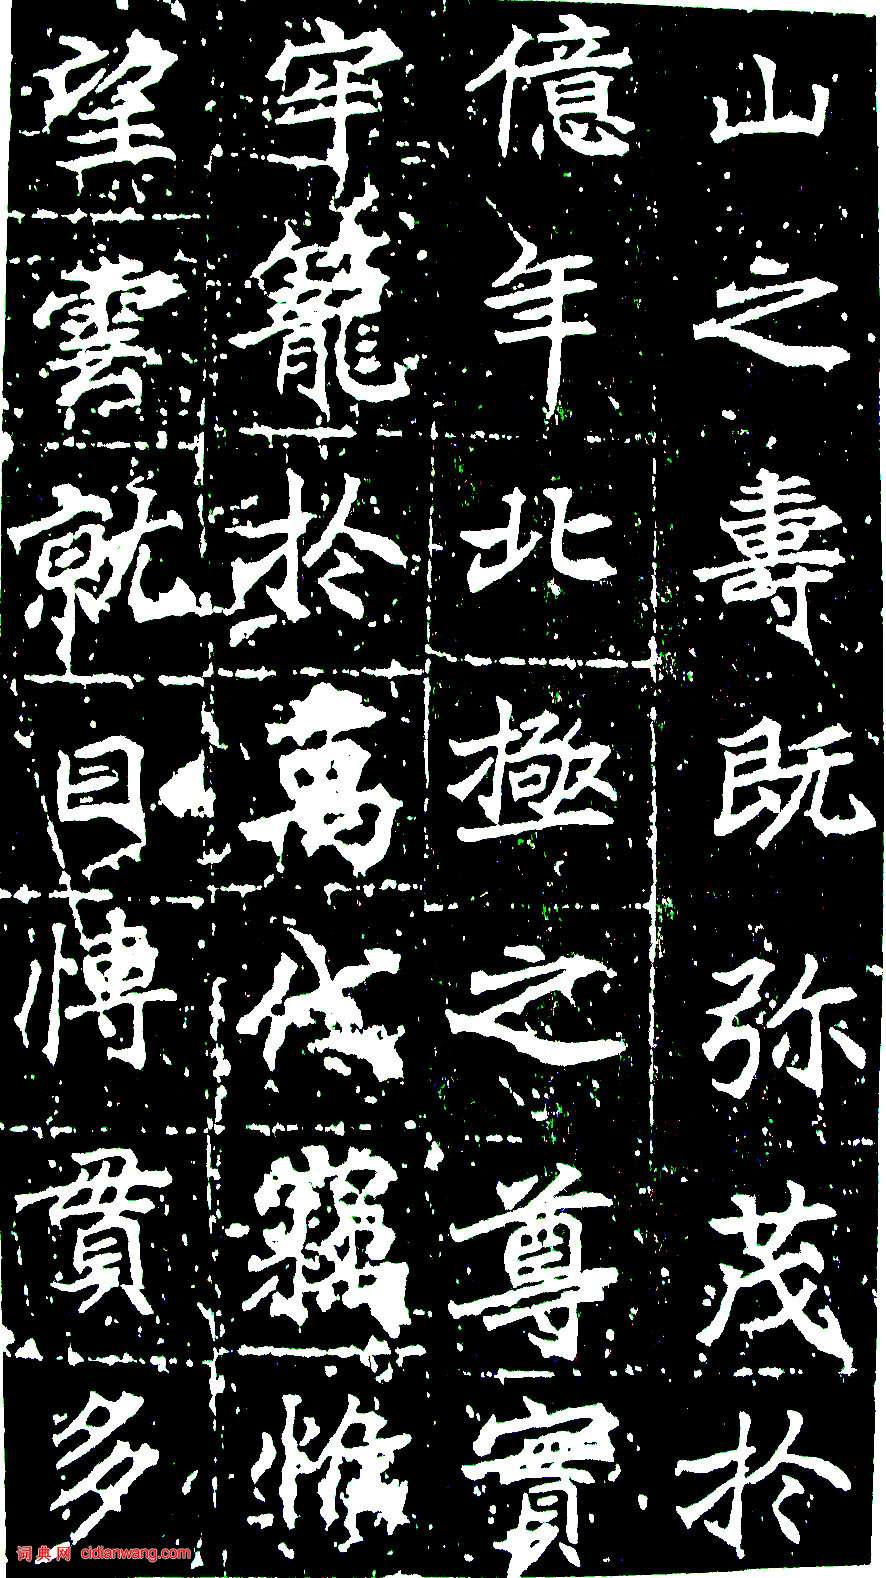 山之壽既弥茂於
億年北極之尊實
牢籠於萬代竊惟
望雲就日博貫多
词典网 cidianwang.com